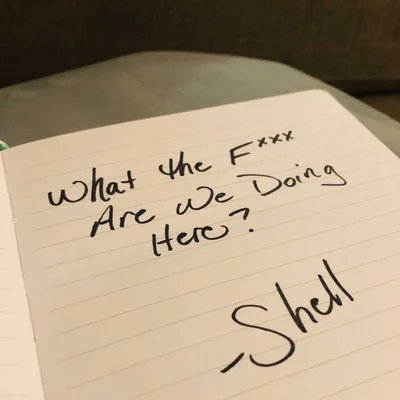 What the F***
Are We Doing
Here?
-Shell